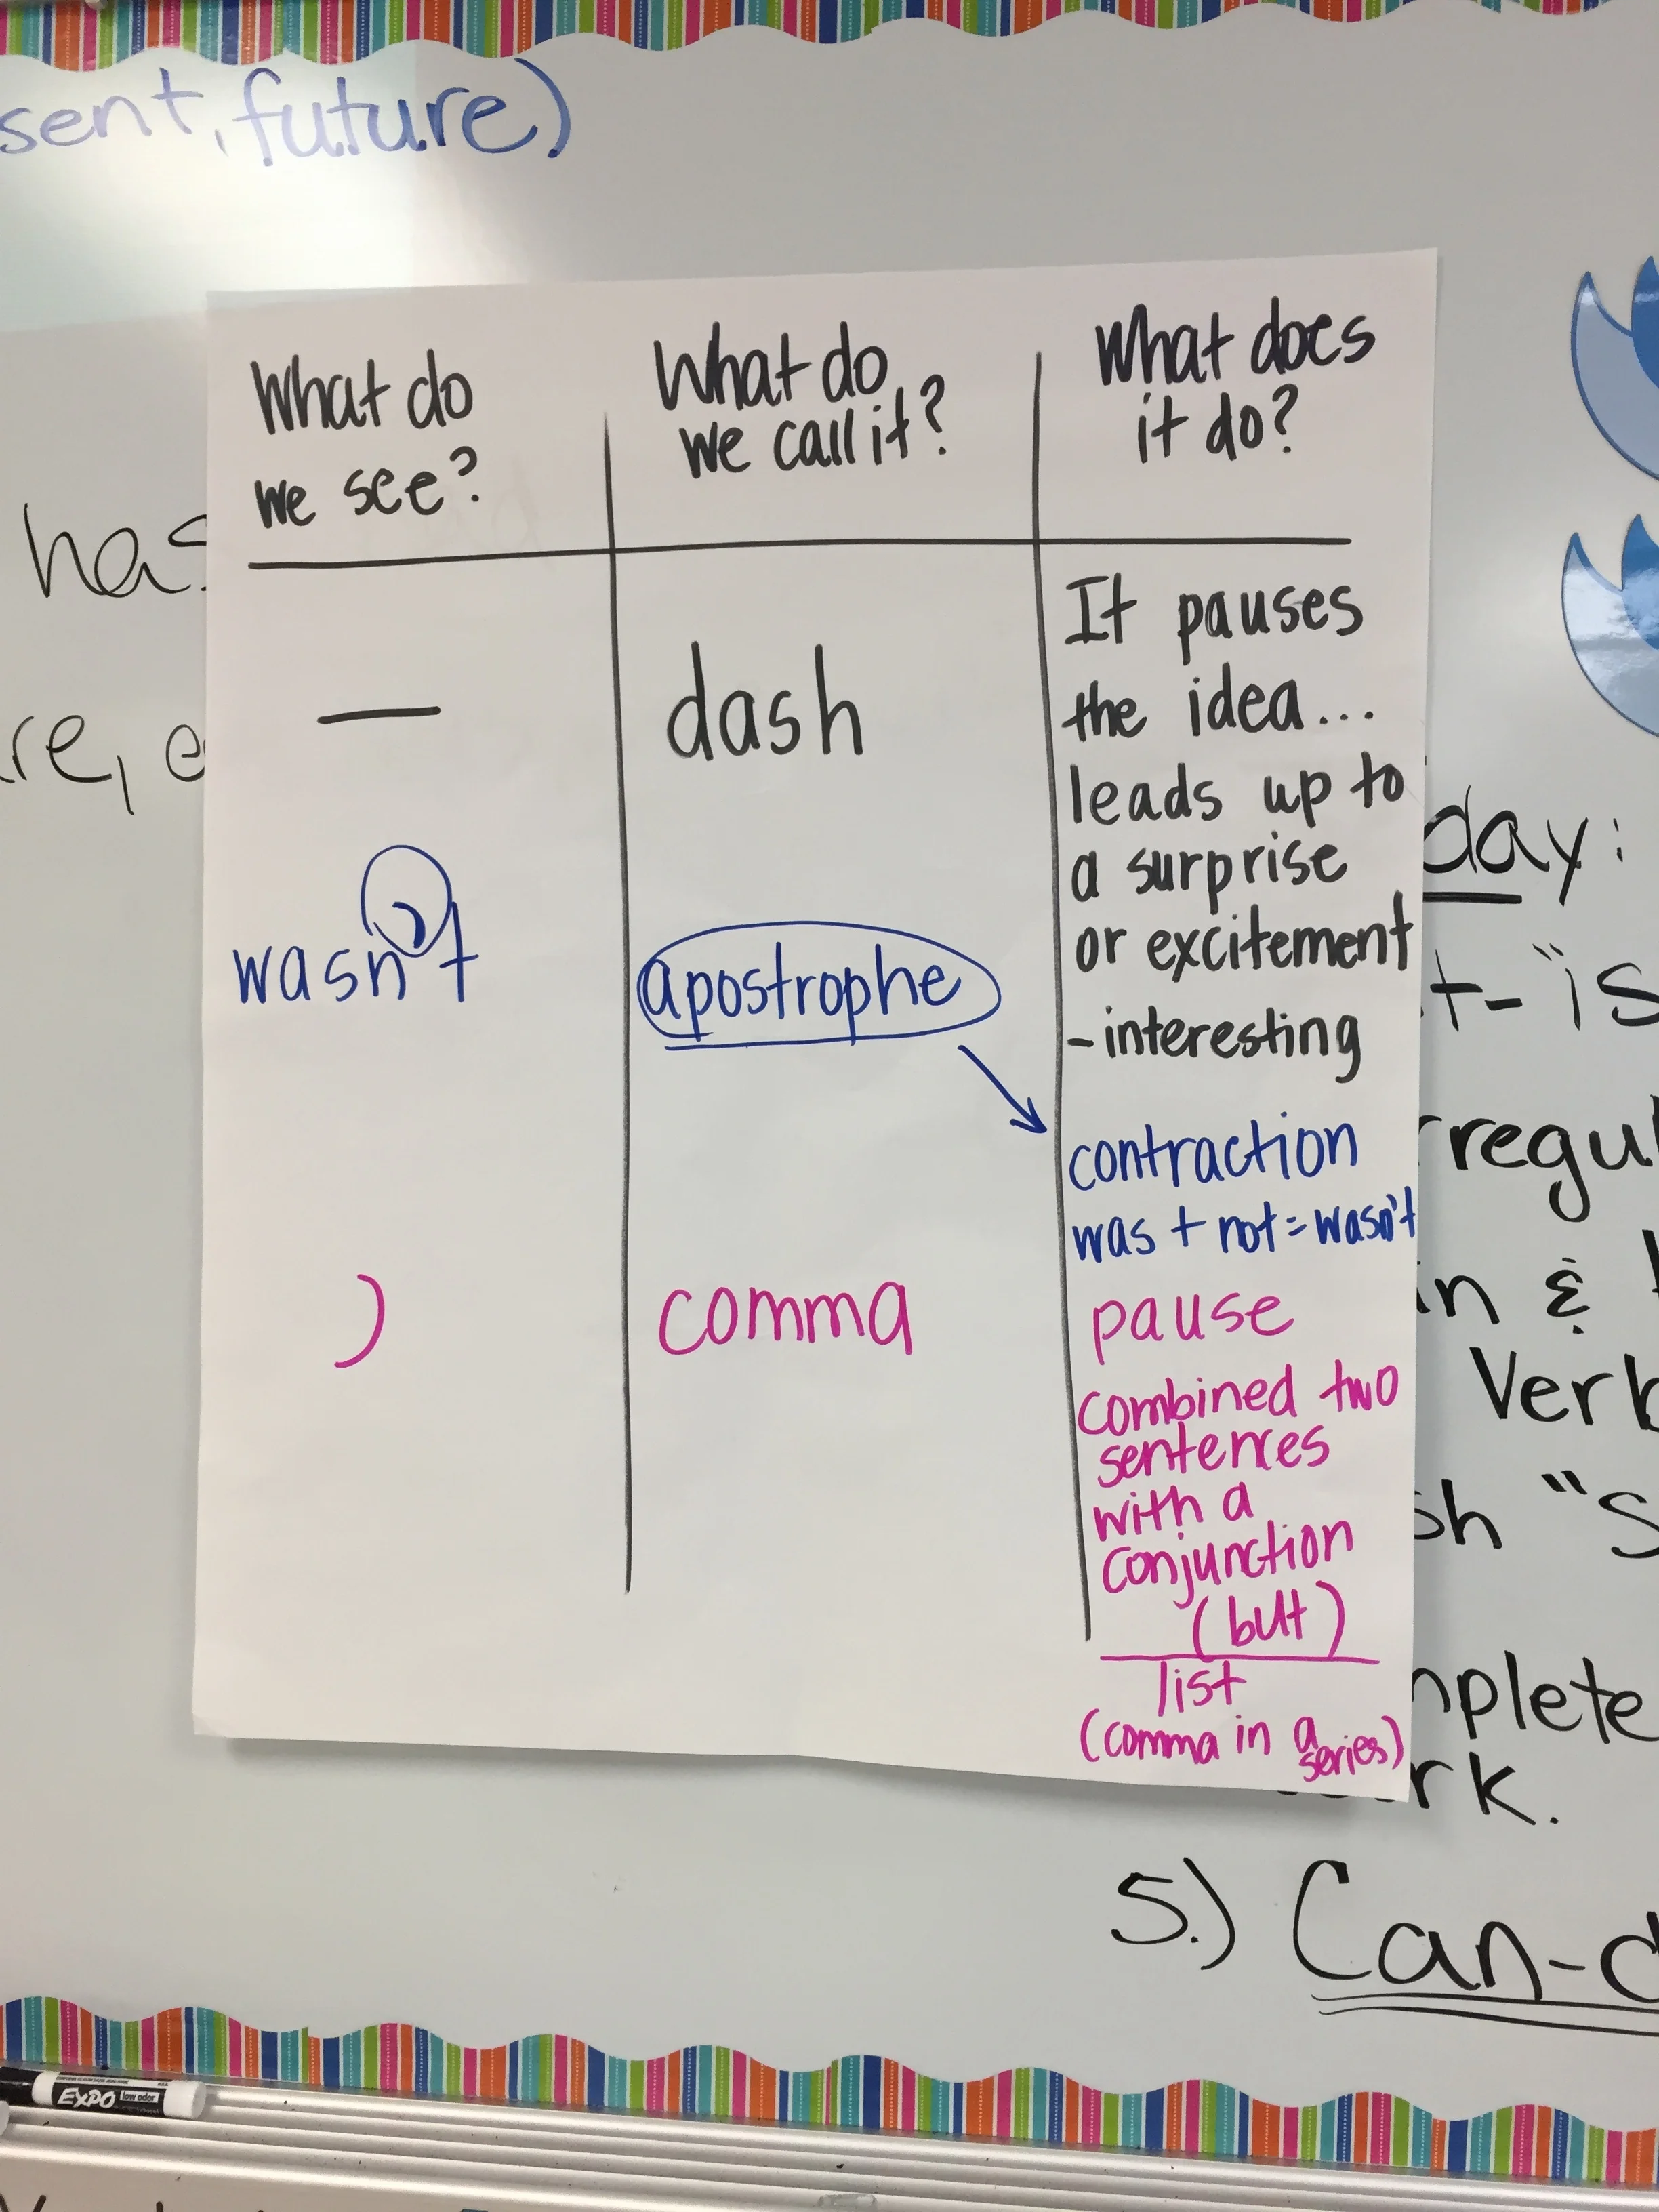 sent, future)
What do
we see?
What do
we call it?
What does
it do?
—
dash
It pauses
the idea...
leads up to
a surprise
or excitement
- interesting
wasn't
apostrophe
contraction
was + not = wasn't
,
comma
pause
combined two
sentences
with a
conjunction
(but)
list
(comma in a
series)
has
re, e
day:
t- "is
rregul
in &
Verb
sh "S
mplete
rk.
5.) Can-d
EXPO low odor